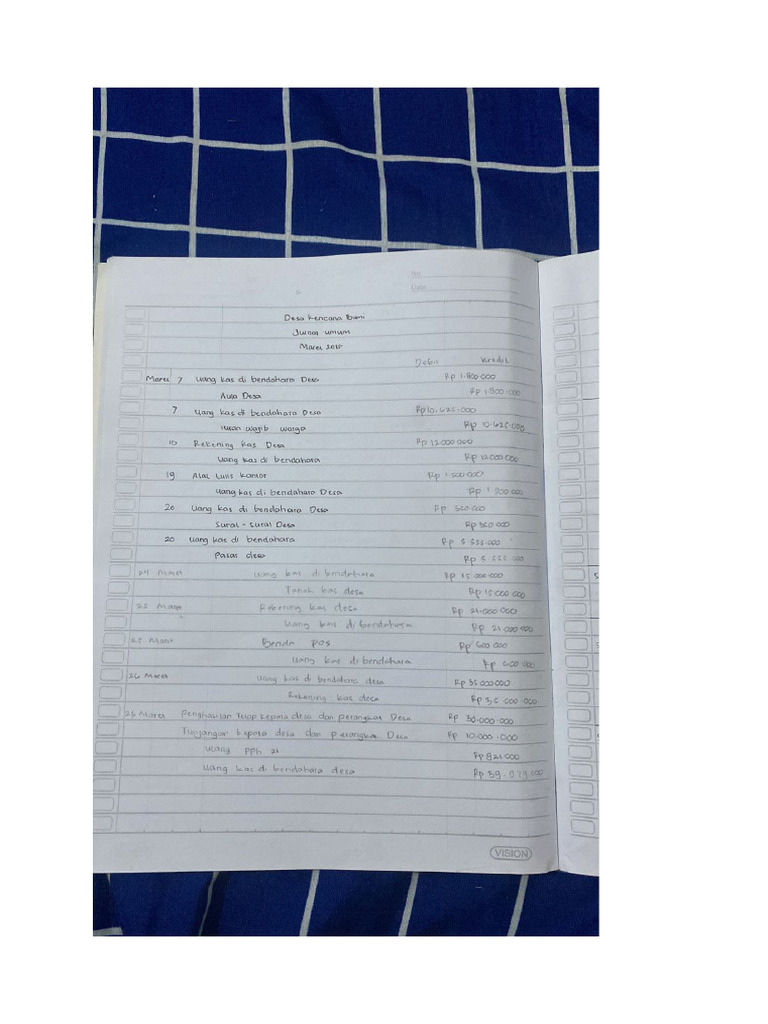 No
Date
Desa Kencana Bumi
Jurnal umum
Maret 2018
Debit Kredit
Maret 7 Uang kas di bendahara Desa Rp 1.800.000
Aula Desa Rp 1.800.000
7 Uang kas di bendahara Desa Rp 10.625.000
iuran wajib warga Rp 10.625.000
10 Rekening Kas Desa Rp 12.000.000
Uang kas di bendahara Rp 12.000.000
19 Alat tulis kantor Rp 1.500.000
Uang kas di bendahara Desa Rp 1.500.000
20 Uang kas di bendahara Desa Rp 360.000
Surat - surat Desa Rp 360.000
20 Uang kas di bendahara Rp 5.555.000
Pasar desa Rp 5.555.000
24 Maret Uang kas di bendahara Rp 15.000.000
Tanah kas desa Rp 15.000.000
25 Maret Rekening kas desa Rp 21.000.000
Uang kas di bendahara Rp 21.000.000
25 Maret Benda POS Rp 600.000
Uang kas di bendahara Rp 600.000
26 Maret Uang kas di bendahara desa Rp 35.000.000
Rekening kas desa Rp 35.000.000
Penghasilan Tetap kepala desa dan perangkat Desa Rp 30.000.000
Tunjangan kepala desa dan perangkat Desa Rp 10.000.000
utang PPh 21
Uang kas di bendahara desa
VISION